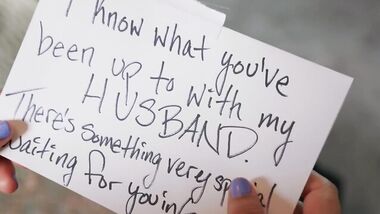 I know what you've
been up to with my
HUSBAND.
There's something very special
waiting for you in